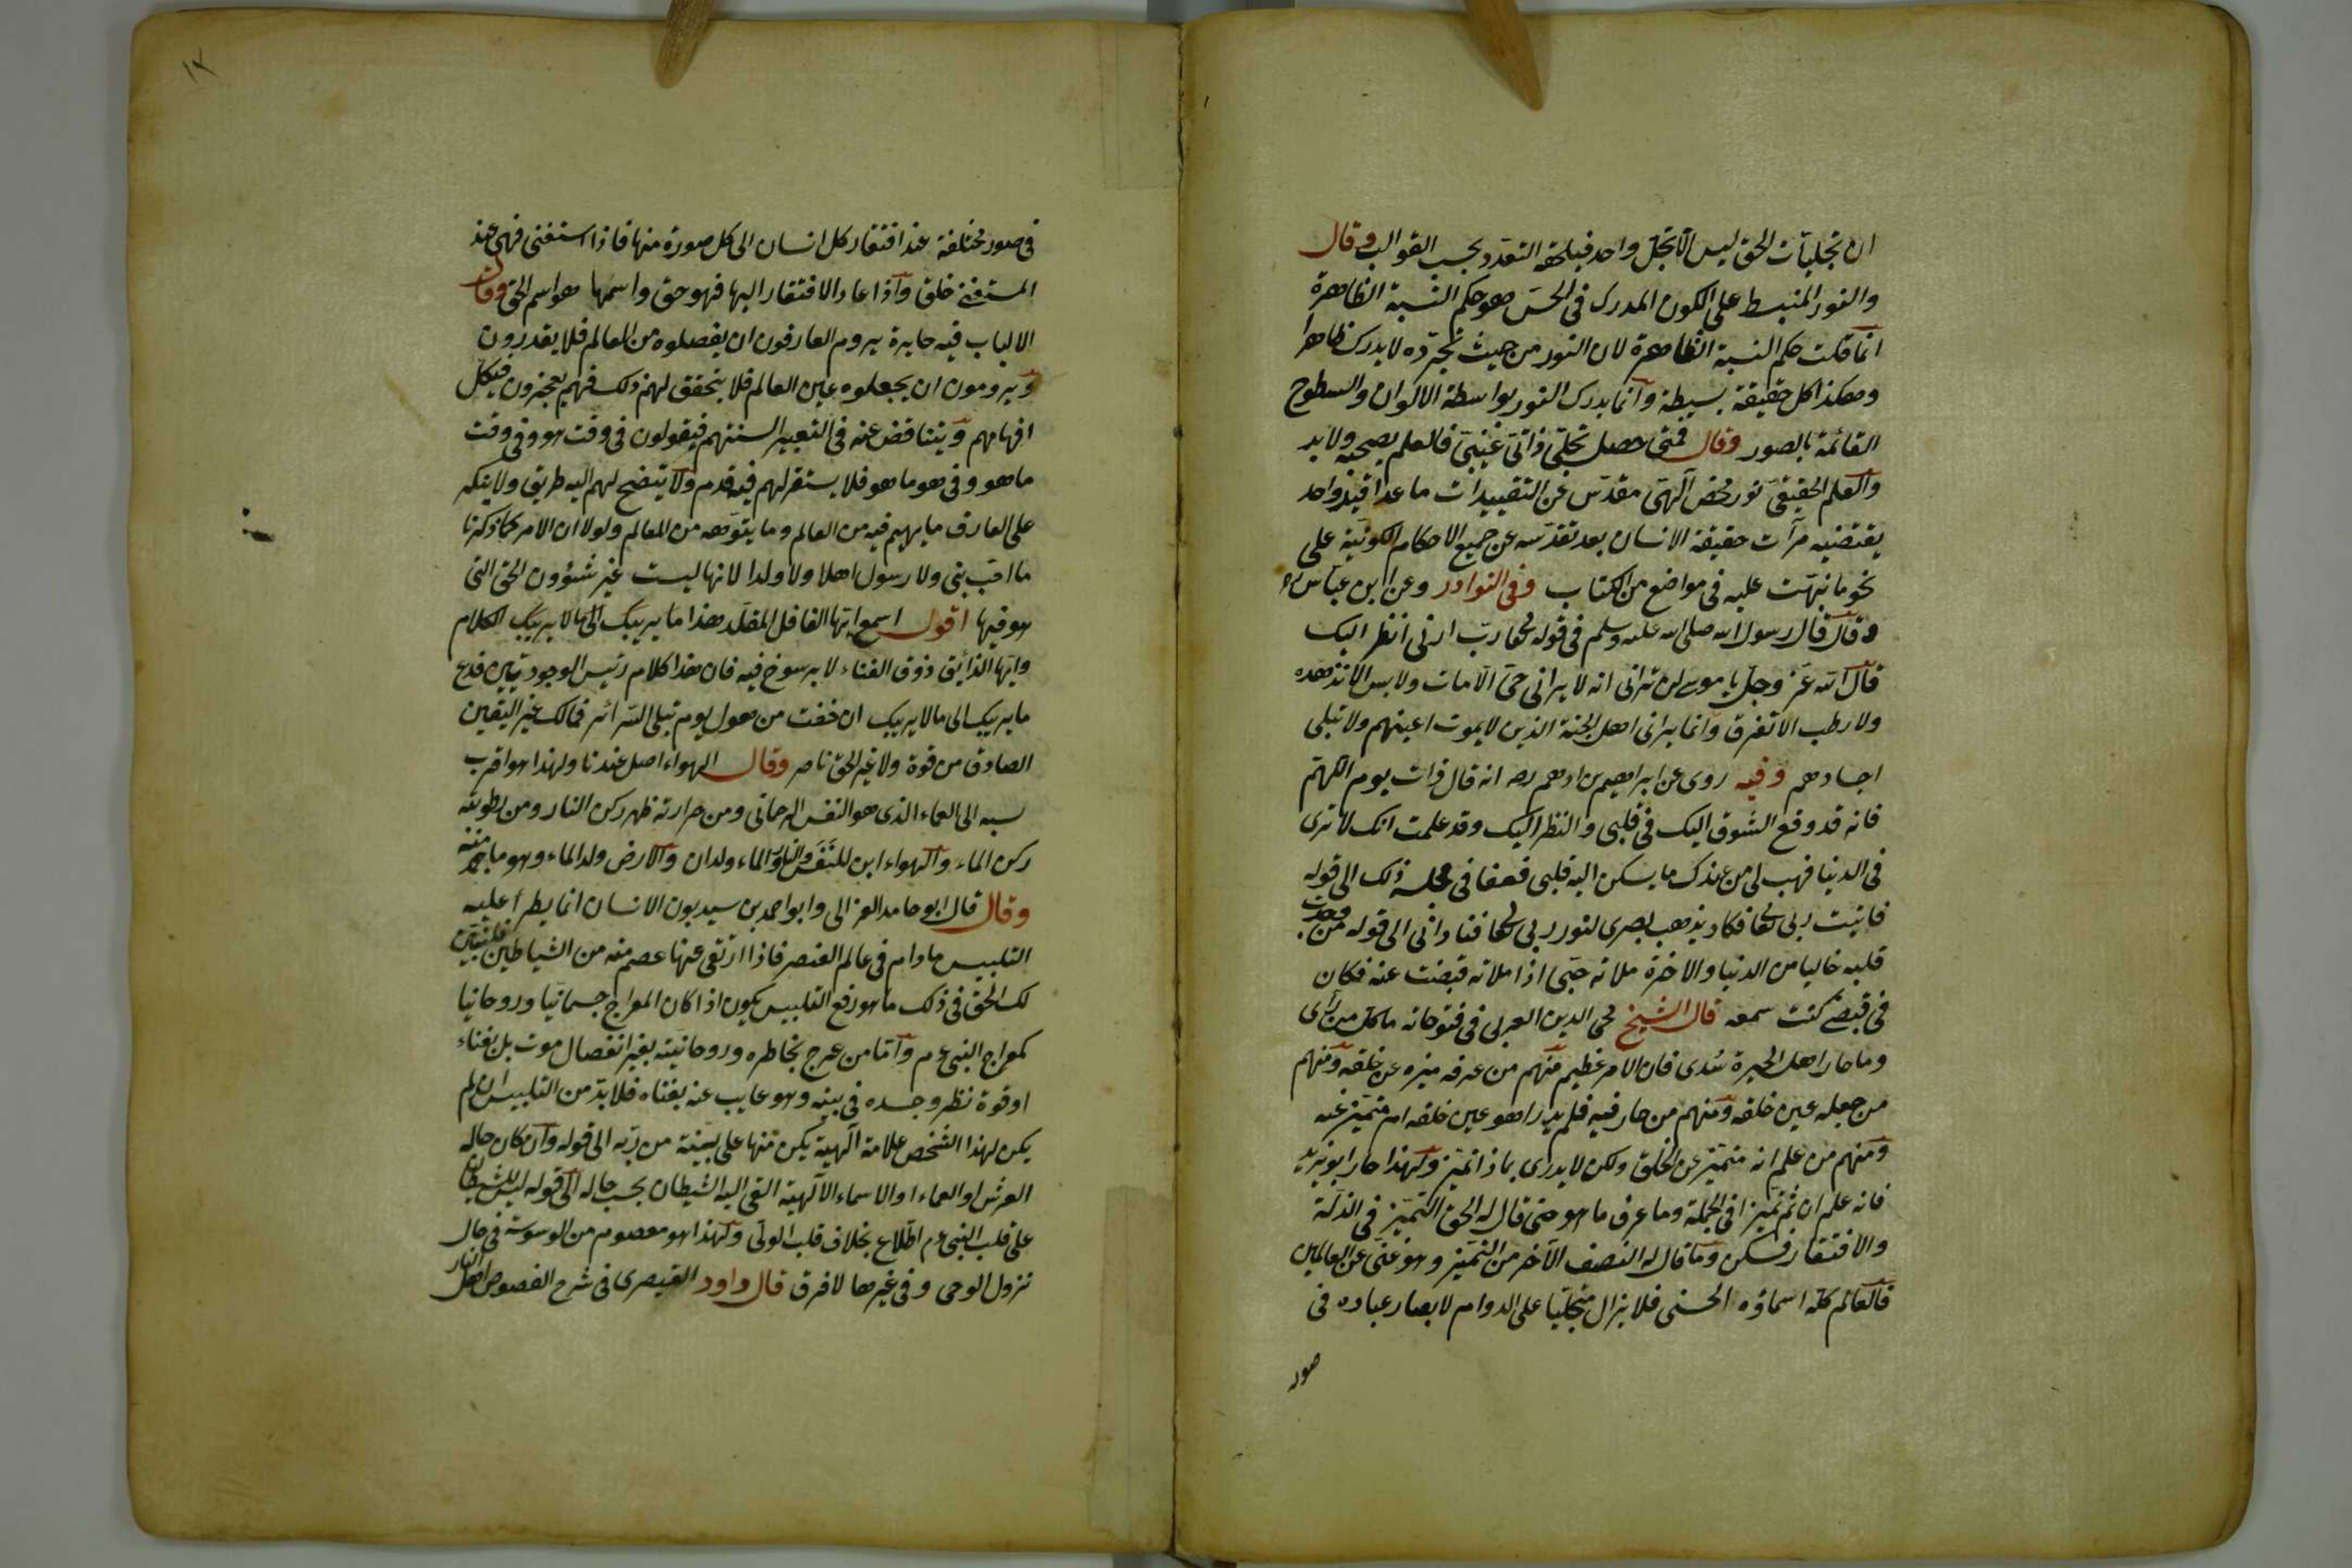 ان تجليات الحق ليس الا تجلّ واحد فيلحقه التعدد بحسب القوالب وقال
والنور المنبسط على الكون المدرك فى الحسّ هو حكم النسبة الظاهرة
انما قلت حكم النسبة الظاهرة لان النور من حيث تجرّده لا يدرك ظاهرا
وهكذا كل حقيقة بسيطة وانما يدرك النور بواسطة الالوان والسطوح
القائمة بالصور وقال فمتى حصل تجلّى ذاتىّ غيبىّ فالعلم يصحبه ولا بد
والعلم الحقيقىّ نور محض آلهىّ مقدّس عن التقييدات ما عدا قيد واحد
يقتضيه مرآت حقيقة الانسان بعد تقدّسه عن جميع الاحكام الكونيّة على
نحو ما نبهّت عليه فى مواضع من الكتاب وفى النوادر وعن ابن عباس
قال قال رسول الله صلى الله عليه وسلم فى قوله تعا رب ارنى انظر اليك
قال الله عزّ وجلّ يا موسى لن ترانى انه لا يرانى حىّ الا مات ولا يابس الا تدهده
ولا رطب الا تفرق وانما يرانى اهل الجنة الذين لا يموت اعينهم ولا تبلى
اجسادهم وفيه روى عن ابراهيم بن ادهم رحه انه قال ذات يوم اللهمّ
فانه قد وقع الشوق اليك فى قلبى والنظر اليك وقد علمت انك لا ترى
فى الدنيا فهب لى من عندك ما يسكن اليه قلبى فغفا فى مجلسه ذلك الى قوله
فاتيت ربى تعا فكاد يذهب بصرى لنور ربى تعا فنادانى الى قوله من وجدت
قلبه خاليا من الدنيا والاخرة ملأته حبّى اذا ملأته قبضت عنه فكان
فى قبضتى كنت سمعه قال الشيخ محى الدين العربى فى فتوحاته ما كل من رأى
وما حار اهل الحيرة سُدى فان الامر عظيم منهم من عرفه ميزه عن خلقه ومنهم
من جعله عين خلقه ومنهم من حار فيه فلم يدر اهو عين خلقه ام متميّز عنه
ومنهم من علم انه متميّز عن الخلق ولكن لا يدرى بماذا تميّز ولهذا حار ابو يزيد
فانه علم ان ثم تميّزا فى الجملة وما عرف ما هو حتى قال له الحق التميّز فى الذلّة
والافتقار فسكن وما قال له النصف الآخر من التميّز وهو غنىّ عن العالمين
فالعالم كله اسماؤه الحسنى فلا يزال متجلّيا على الدوام لابصار عباده فى
صور
١٢
فى صور مختلفة عند افتقار كل انسان الى كل صورة منها فاذا استغنى فهى عند
المستغنى خلق واذا عاد الافتقار اليها فهو حق واسمها هو اسم الحق وقال
الالباب فيه حايرة يروم العارفون ان يفصلوه من العالم فلا يقدرون
ويرومون ان يجعلوه عين العالم فلا يتحقق لهم ذلك فهم يعجزون فيكلّ
افهامهم ويتناقض عنه فى التعبير السنتهم فيقولون فى وقت هو وفى وقت
ما هو وفى هو ما هو فلا يستقر لهم فيه قدم ولا يتضح لهم اليه طريق ولا ينكر
على العارف ما يهيم فيه من العالم وما يتوهمه من المعالم ولولا ان الامر كما ذكرنا
ما احبّ نبى ولا رسول اهلا ولا ولدا لانها ليست غير شؤون الحق التى
هو فيها اقول اسمع ايّها الغافل المقلّد هذا ما يريبك الى ما لا يريبك الكلام
وايّها الذايق ذوق الفناء لا برسوخ فيه فان هذا كلام رئيس الوجوديّين فدع
ما يريبك الى ما لا يريبك ان خفت من هول يوم تبلى السّرائر فمالك غير اليقين
الصادق من قوة ولا غير الحق ناصر وقال الهواء اصل عندنا ولهذا هو اقرب
نسبه الى العماء الذى هو النفس الرحمانى ومن حرارته ظهر ركن النار ومن رطوبته
ركن الماء والهواء ابن للنَفَس والنار والماء ولدان والارض ولد الماء وهو ما جمد منه
وقال قال ابو حامد الغزالى وابو احمد بن سيد بون الانسان انما يطرأ عليه
التلبيس مادام فى عالم العنصر فاذا ارتقى عنها عصم منه من الشياطين فلنبيّن
لك الحق فى ذلك ما هو رفع التلبيس يكون اذا كان المعراج جسمانيّا وروحانيا
كمعراج النبى عم وامّا من عرج بخاطره وروحانيّته بغير انفصال موت بل بفناء
او قوة نظر وجسده فى بيته وهو غايب عنه بفناه فلا بدّ من التلبيس ان لم
يكن لهذا الشخص علامة آلهية يكن منها على بيّنة من ربّه الى قوله وان كان حاله
العرش او العماء او الاسماء الآلهية القى اليه الشيطان بحسب حاله الى قوله ليس للشيطان
على قلب النبى عم اطّلاع بخلاف قلب الولى ولهذا هو معصوم من الوسوسة فى حال
نزول الوحى وفى غيرها لا فرق قال داود القيصرى فى شرح الفصوص اهل النار